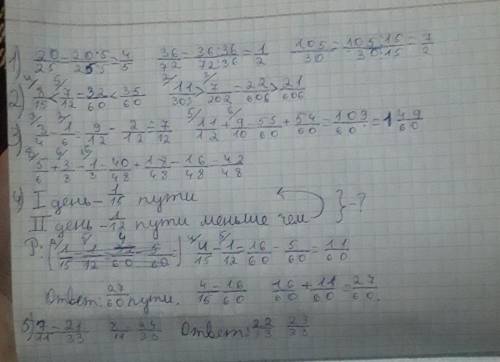 1) 20/25 = 20:5/25:5 = 4/5   36/72 = 36:36/72:36 = 1/2   105/30 = 105:15/30:15 = 7/2
2) 8/15 < 7/12 = 32/60 < 35/60   11/303 > 7/202 = 22/606 > 21/606
3) 3/4 - 1/6 = 9/12 - 2/12 = 7/12   11/12 + 9/10 = 55/60 + 54/60 = 109/60 = 1 49/60
5/6 + 3/8 - 1/3 = 40/48 + 18/48 - 16/48 = 42/48
4) I день - 1/15 пути
II день - 1/12 пути меньше чем } - ?
Р: 4/15 - 1/12 = 16/60 - 5/60 = 11/60
Ответ: 27/60 пути.   4/15 = 16/60   16/60 + 11/60 = 27/60.
5) 7/11 = 21/33   8/11 = 24/33   Ответ: 22/33 23/33